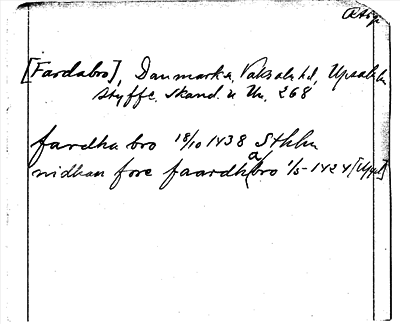 [Fardabro], Danmarks, Vaksala hd, Upsala ln
Styffe. Skand. u. Un. 268
fardha bro 18/10 1438 Sthlm
nidhan fore faardha bro 1/5 1424 [Uppl]